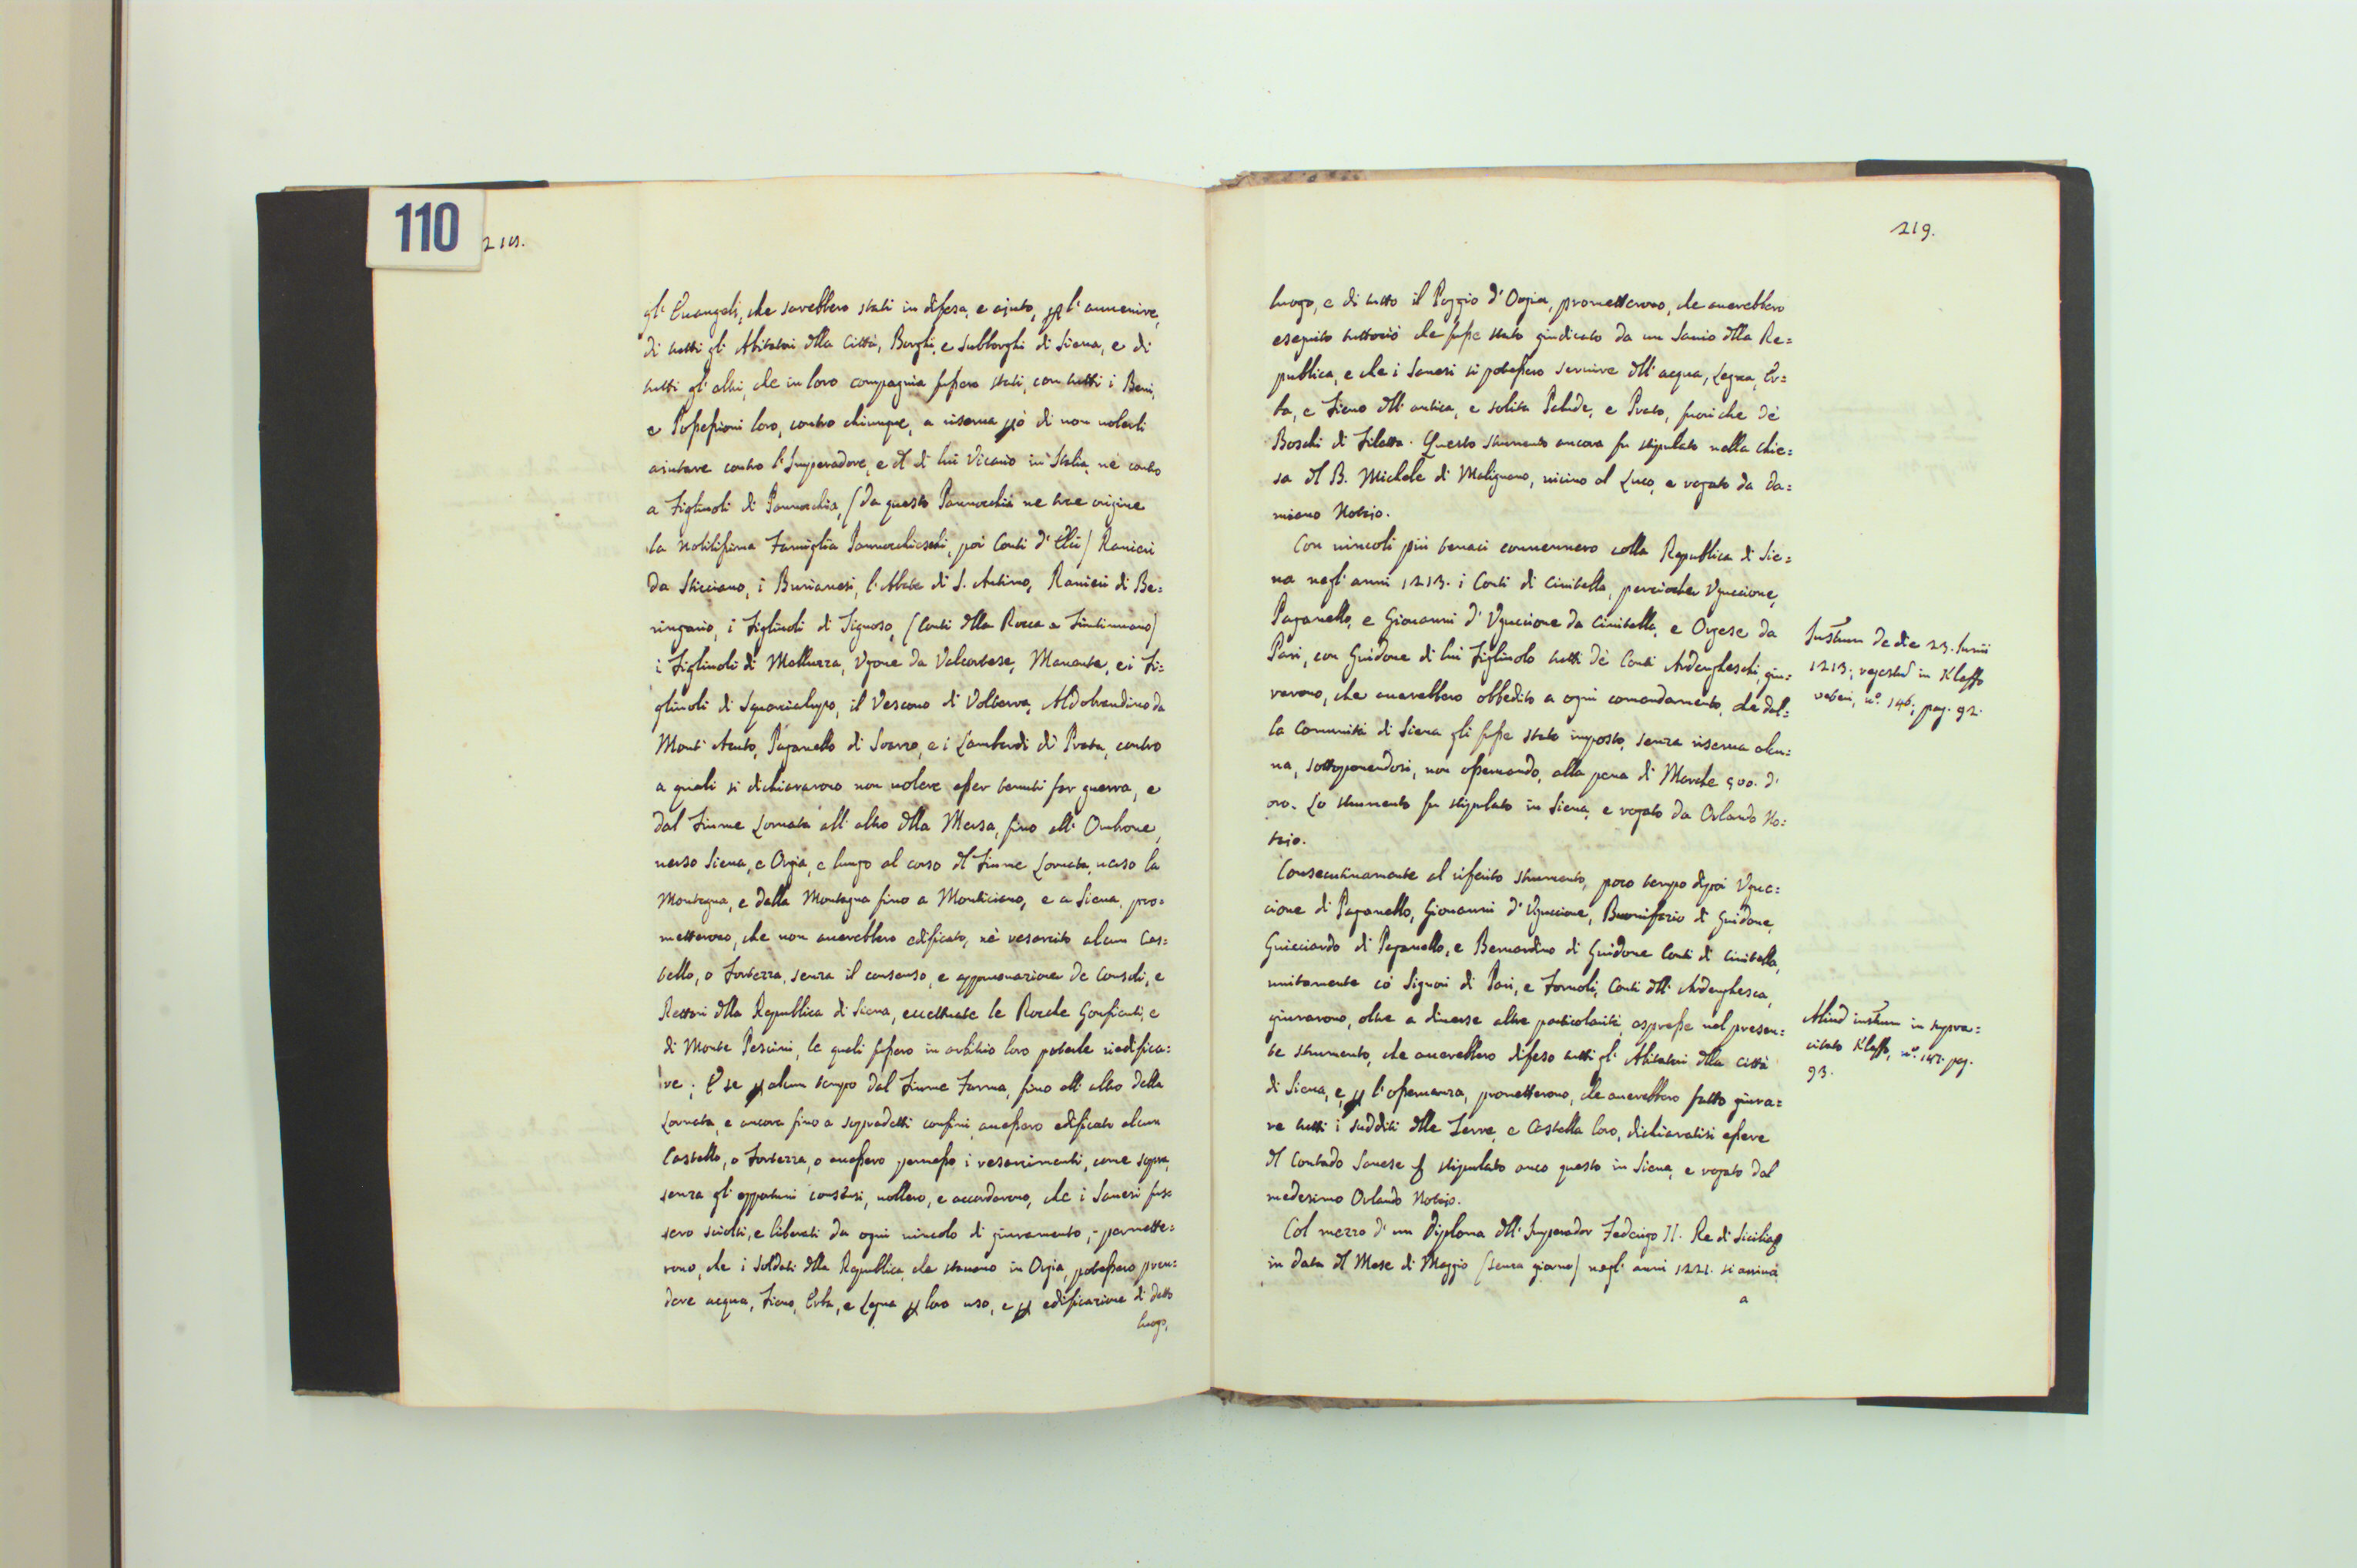 110
218.
gl' Euangeli, che sarebbero stati in difesa, e ajuto, p l' auuenire,
di tutti gl' Abitatori dlla Città, Borghi, e Subborghi di Siena, e di
tutti gl' altri, che in loro compagnia fussero stati, con tutti i Beni,
e Possessioni loro, contro chiunque, a riserua pò di non uolerli
aiutare contro l' Imperadore, e dl di lui Vicario in Italia, nè contro
a Figliuoli di Pannocchia, (da questo Pannocchia ne trae origine
la Nobilissima Famiglia Pannocchieschi, poi Conti d' Elci) Ranieri
da Sticciano, i Burianesi, l' Abbate di S. Antimo, Ranieri di Be=
ringario, i Figliuoli di Signoso, (Conti dlla Rocca a Tintinnano)
i Figliuoli di Malluzza, Vgone da Valcortese, Manente, e i Fi=
gliuoli di Squarcialupo, il Vescouo di Volterra, Aldobrandino da
Mont' Acuto, Paganello di Souarzo, e i Lambardi di Prata, contro
a quali si dichiararono non uolere esser tenuti far guerra, e
dal Fiume Lornata all' altro dlla Mersa, fino all' Ombrone,
uerso Siena, e Orgia, e lungo al corso dl Fiume Lornata, uerso la
Montagna, e dalla Montagna fino a Monticiano, e a Siena, pro=
metterono, che non auerebbero edificato, nè resarcito alcun Cas=
tello, o Fortezza, senza il consenso, e approuazione de Consoli, e
Rettori dlla Republica di Siena, eccettuate le Rocche Gonfienti, e
di Monte Pescini, le quali fussero in arbitrio loro poterle riedifica=
re; E se p alcun tempo dal Fiume Farma, fino all' altro della
Lornata, e ancora fino a sopradetti confini auessero edificato alcun
Castello, o Fortezza, o auessero permesso i resarcimenti, come sopra,
senza gl' opportuni consensi, uollero, e accordarono, che i Sanesi fus=
sero sciolti, e liberati da ogni uincolo di giuramento; permette=
rono, che i Soldati dlla Republica, che stauano in Orgia, potessero pren=
dere acqua, Fieno, Erba, e Legna p loro uso, e p edificazione di detto
luogo,
219.
luogo, e di tutto il Poggio d' Orgia, prometterono, che auerebbero
eseguito tuttociò che fusse stato giudicato da un Sauio dlla Re=
publica, e che i Sanesi si potessero seruire dll' acqua, Legna, Er=
ba, e Fieno dll' antica, e solita Palude, e Prato, fuori che dè
Boschi di Filetta. Questo strumento ancora fu stipulato nella Chie=
sa dl B. Michele di Malignano, uicino al Luco, e rogato da Da=
miano Notaio.
Con uincoli più tenaci conuennero colla Republica di Sie=
na negl' anni 1213. i Conti di Ciuitella, perciocche Vguccione,
Paganello, e Giouanni d' Vguccione da Ciuitella, e Orgese da
Pari, con Guidone di lui Figliuolo tutti dè Conti Ardengheschi, giu=
rarono, che auerebbero obbedito a ogni comandamento, che dal=
la Comunità di Siena gli fusse stato imposto, senza riserua alcu=
na, sottoponendosi, non osseruando, alla pena di Marche 500. d'
oro. Lo strumento fu stipulato in Siena, e rogato da Orlando No=
taio.
Consecutiuamente al riferito strumento, poco tempo dipoi Vguc=
cione di Paganello, Giouanni d' Vguccione, Buonifazio di Guidone,
Guicciardo di Paganello, e Bernardino di Guidone Conti di Ciuitella,
unitamente cò Signori di Pari, e Fornoli, Conti dll' Ardenghesca,
giurarono, oltre a diuerse altre particolarità, espresse nel presen=
te strumento, che auerebbero difeso tutti gl' Abitatori dlla Città
di Siena, e p l' osseruanza, prometterono, che auerebbero fatto giura=
re tutti i sudditi dlle Terre, e Castella loro, dichiaratisi essere
dl Contado Sanese fu stipulato anco questo in Siena, e rogato dal
medesimo Orlando Notaio.
Col mezzo d' un Diploma dll' Imperador Federigo II. Re di Sicilia
in data dl Mese di Maggio (senza giorno) negl' anni 1221. si arriua
a
Instrum de die 23. Iunii
1213; regestrū in Kleffo
veteri, n.º 146; pag. 92.
Aliud instrum in supra=
citato Kleffo, n.º 147. pag.
93.